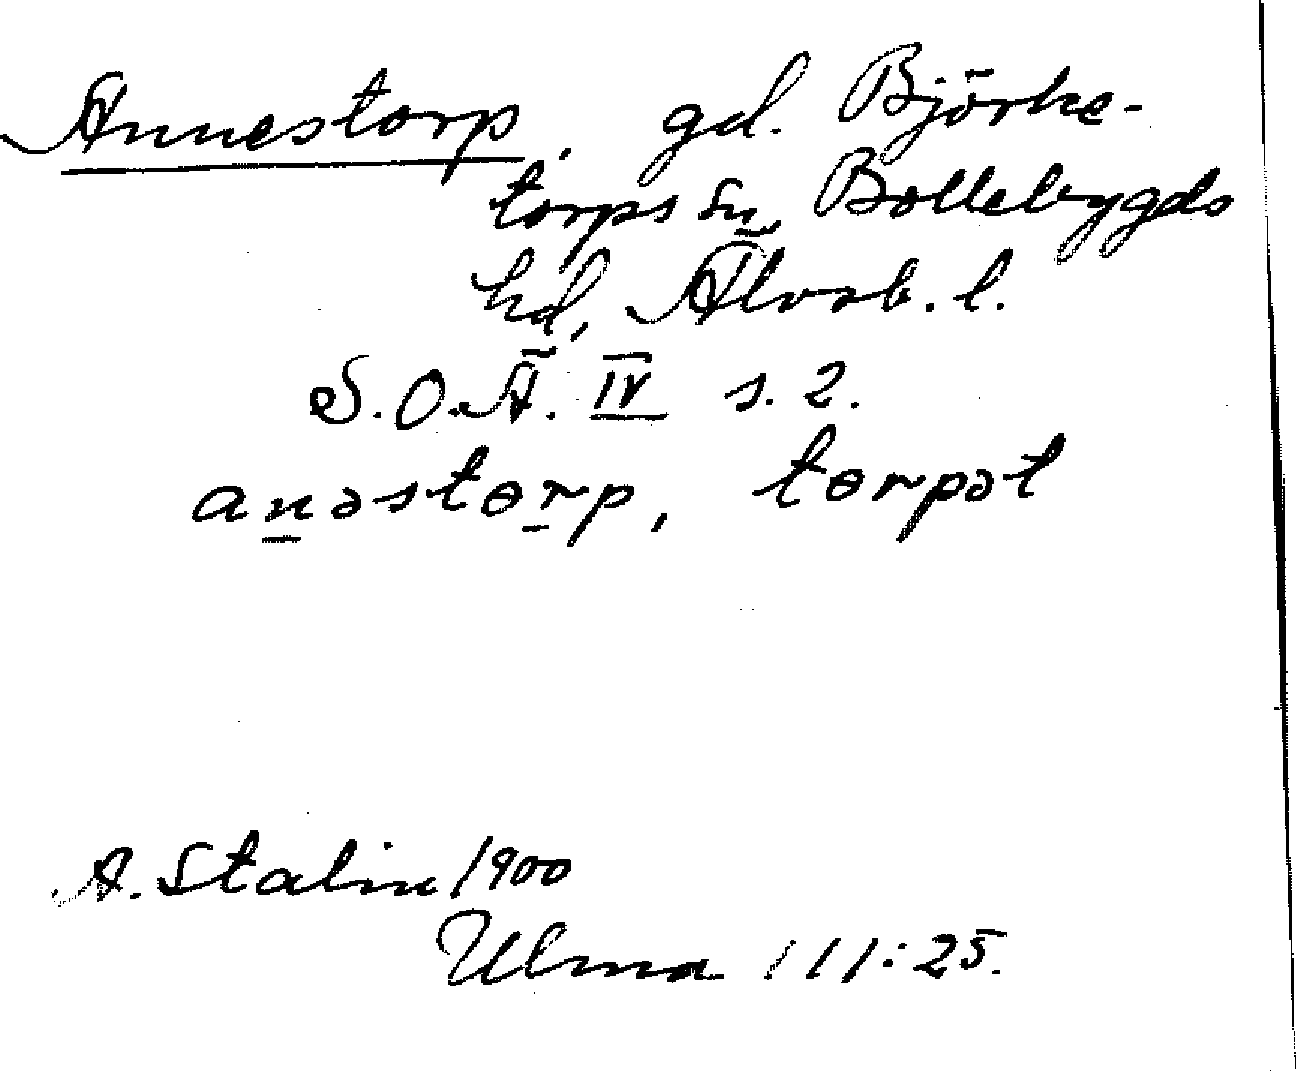 Annestorp, gd. Björke-
torps sn, Bollebygds
hd, Älvsb. l.
S.O.Ä. IV s. 2.
anəstɵrp, tɵrpət
A. Stalin 1900
Ulma 111:25.